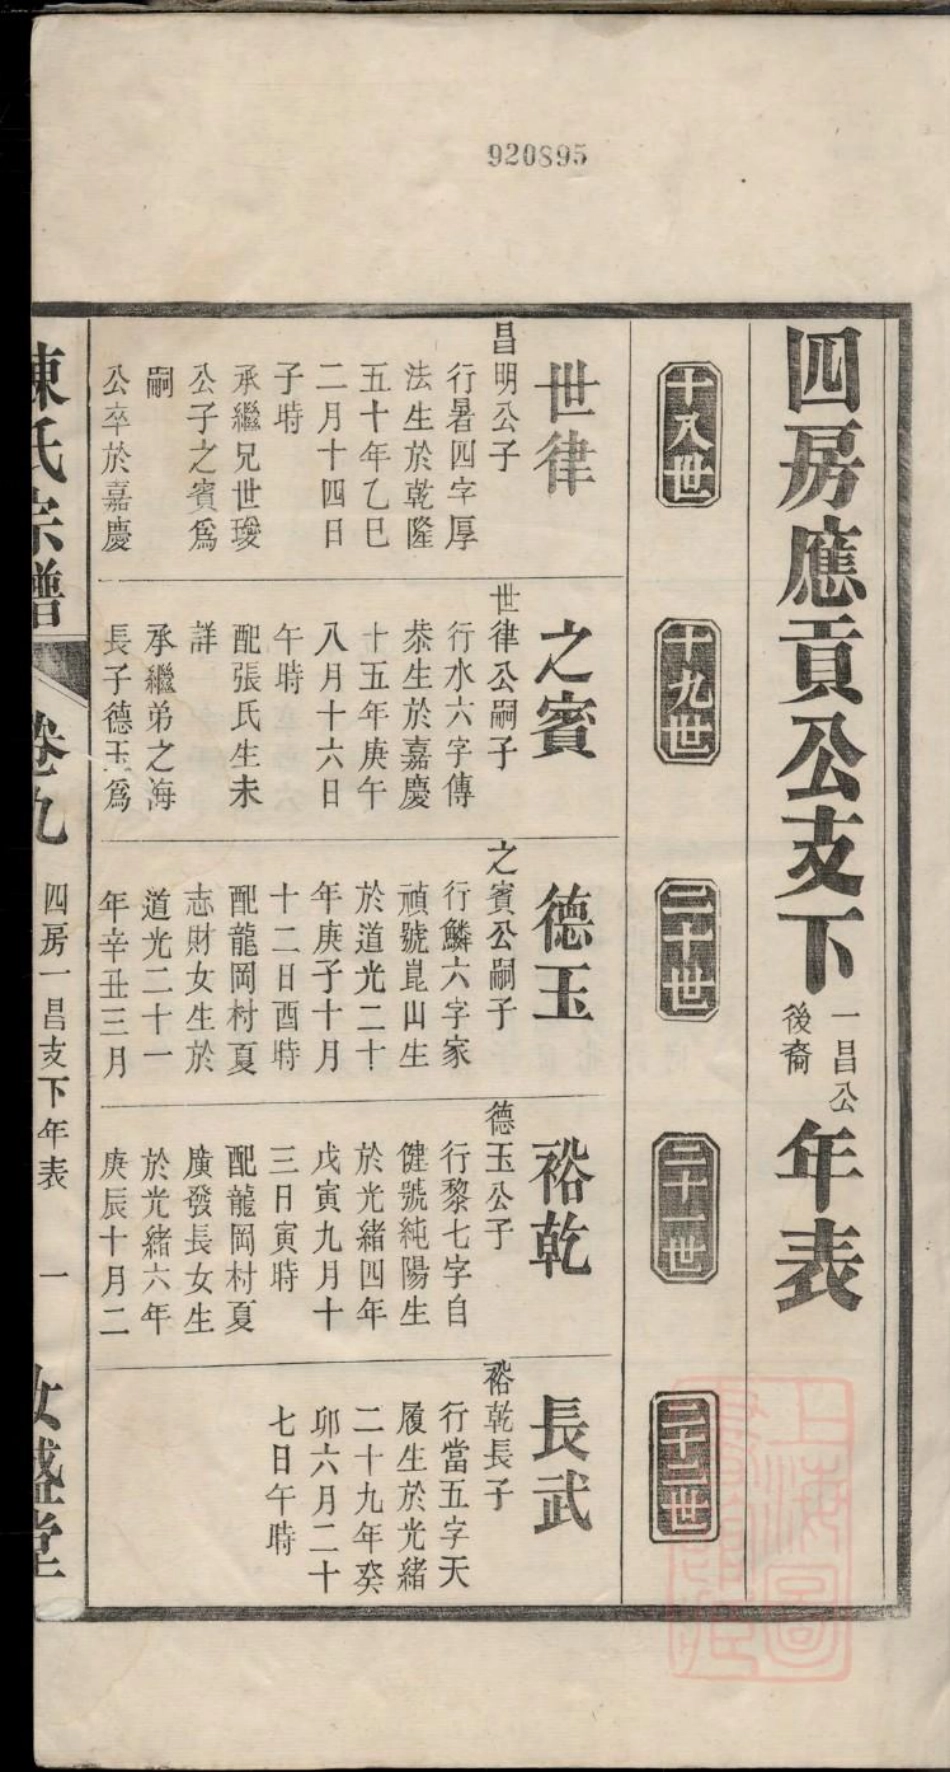 920895
四房應貢公支下
一昌公
後裔
年表
十八世
十九世
二十世
二十一世
二十二世
世律
昌明公子
行暑四字厚
法生於乾隆
五十年乙巳
二月十四日
子時
承繼兄世璦
公子之賓爲
嗣
公卒於嘉慶
之賓
世律公嗣子
行水六字傳
恭生於嘉慶
十五年庚午
八月十六日
午時
配張氏生未
詳
承繼弟之海
長子德玉爲
德玉
之賓公嗣子
行鱗六字家
禎號崑山生
於道光二十
年庚子十月
十二日酉時
配龍岡村夏
志財女生於
道光二十一
年辛丑三月
裕乾
德玉公子
行黎七字自
健號純陽生
於光緒四年
戊寅九月十
三日寅時
配龍岡村夏
廣發長女生
於光緒六年
庚辰十月二
長武
裕乾長子
行當五字天
履生於光緒
二十九年癸
卯六月二十
七日午時
陳氏宗譜
卷九
四房一昌支下年表
一
上海圖